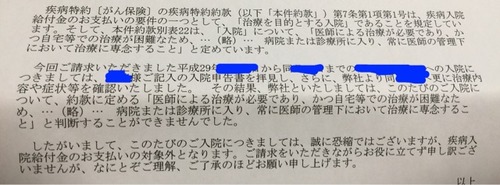 疾病特約［がん保険］の疾病特約約款（以下「本件約款」）第7条第1項第1号は、疾病入院
給付金のお支払いの要件の一つとして、「治療を目的とする入院」であることを規定してい
ます。そして、本件約款別表22は、「入院」について、「医師による治療が必要であり、か
つ自宅等での治療が困難なため、…（略）… 病院または診療所に入り、常に医師の管理下
において治療に専念すること」と定めています。
今回ご請求いただきました平成29年 から同 までの への入院に
つきましては、 様ご記入の入院申告書を拝見し、さらに、弊社より同 更に治療内
容や症状等を確認いたしました。 その結果、弊社といたしましては、このたびのご入院に
ついて、約款に定める「医師による治療が必要であり、かつ自宅等での治療が困難なた
め、…（略）… 病院または診療所に入り、常に医師の管理下において治療に専念するこ
と」と判断することができませんでした。
したがいまして、このたびのご入院につきましては、誠に恐縮ではございますが、疾病入
院給付金のお支払いの対象外となります。ご請求をいただきながらお役に立てず申し訳ござ
いませんが、なにとぞご理解、ご了承のほどお願い申し上げます。
以上